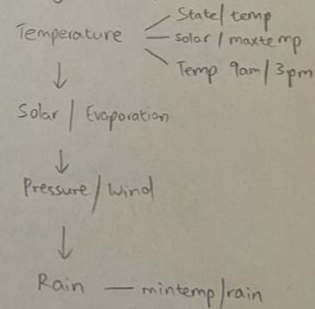 State/temp
Temperature
solar/maxtemp
Temp 9am/3pm
Solar/Evaporation
Pressure/Wind
Rain — mintemp/rain